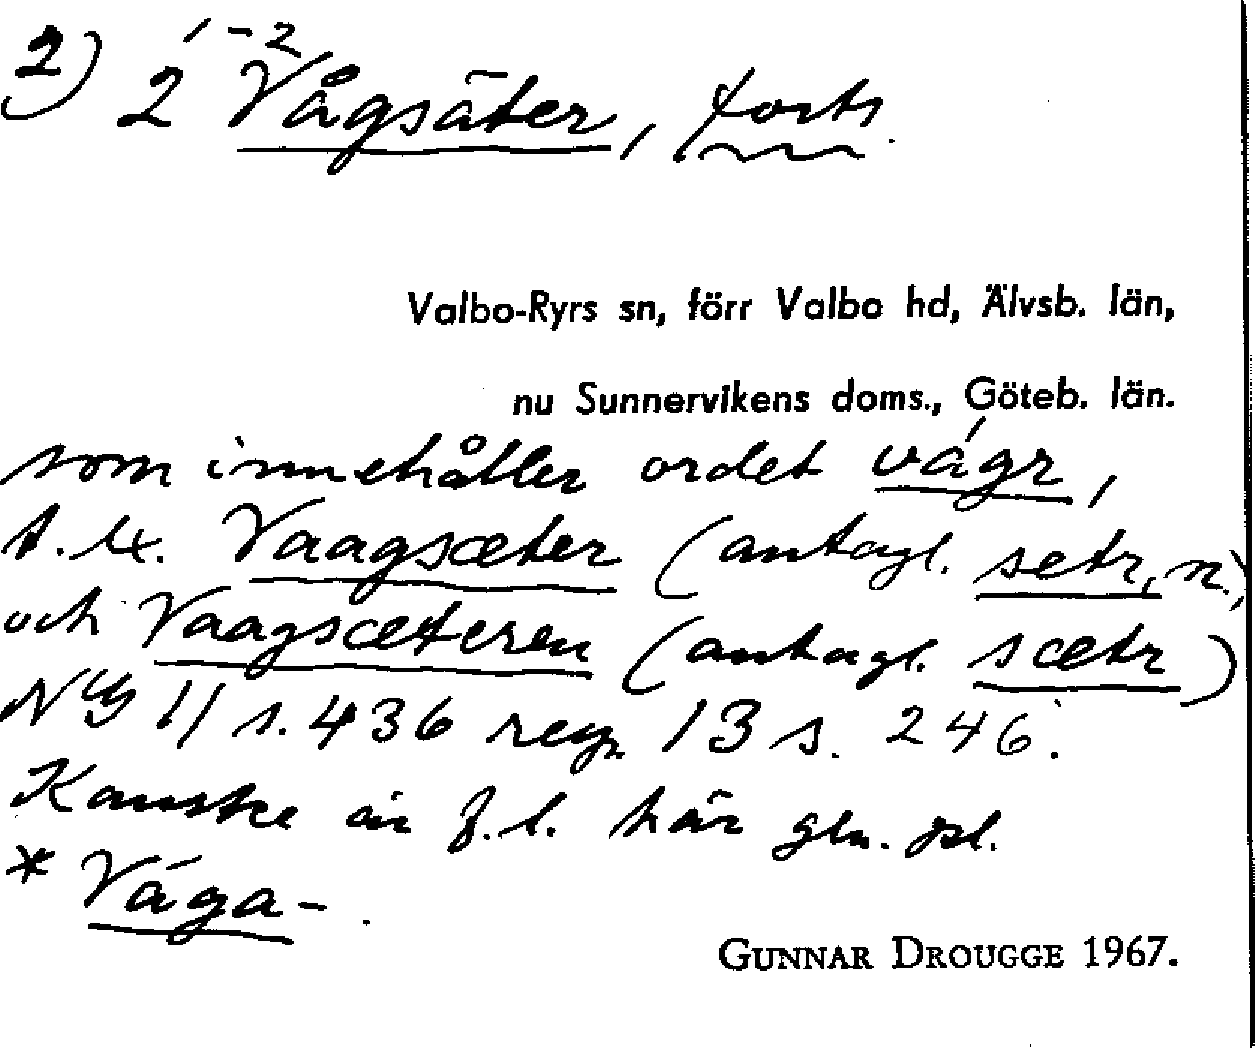 2) 2 1-2 Vågsäter, forts.
Valbo-Ryrs sn, förr Valbo hd, Älvsb. län,
nu Sunnervikens doms., Göteb. län.
som innehåller ordet vágr,
t.ex. Vaagsæter (antagl. setr, n.)
och Vaagsæteren (antagl. sætr)
NG 11 s. 436 resp. 13 s. 246.
Kanske är f.l. här gen. pl.
* Vága-.
GUNNAR DROUGGE 1967.